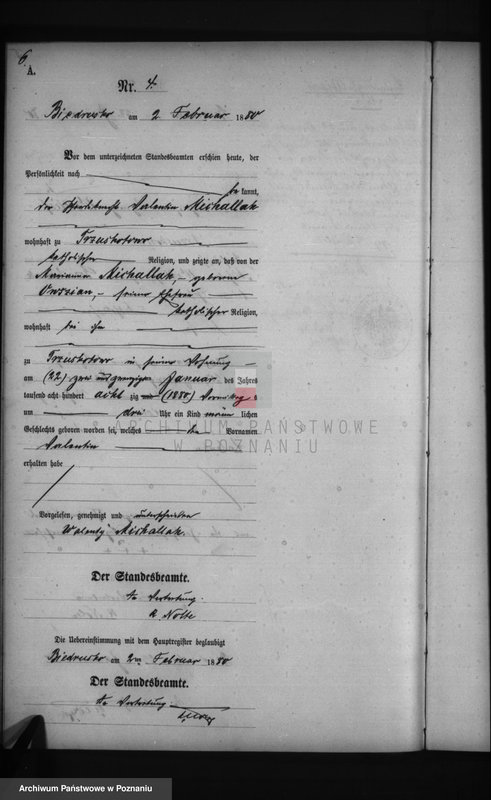 6
A.
Nr. 4.
Biedrusko am 2 Februar 1880
Vor dem unterzeichneten Standesbeamten erschien heute, der
Persönlichkeit nach
be kannt,
der Valentin Michallak
wohnhaft zu Trzuskotowo
katholischer Religion, und zeigte an, daß von der
Marianna Michallak, geboren
seiner Ehefrau
katholischer Religion,
wohnhaft bei ihm
zu Trzuskotowo in seiner Wohnung
am (22) zwei und zwanzigsten Januar des Jahres
tausend acht hundert acht zig (1880) Vormittag s
um drei Uhr ein Kind männ lichen
Geschlechts geboren worden sei, welches den Vornamen
Valentin
erhalten habe
Vorgelesen, genehmigt und unterschrieben
Walenty Michallak.
Der Standesbeamte.
In Vertretung.
Nolte
Die Uebereinstimmung mit dem Hauptregister beglaubigt
Biedrusko am 2ten Februar 1880
Der Standesbeamte.
In Vertretung.
ARCHIWUM PAŃSTWOWE
W POZNANIU
Archiwum Państwowe w Poznaniu